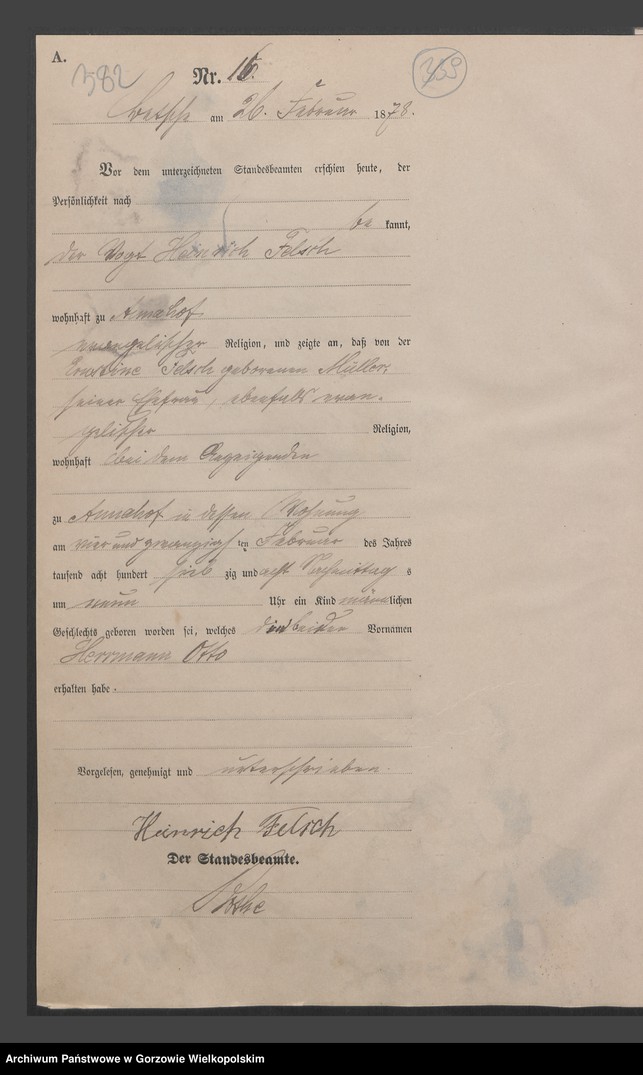 A.
382
Nr. 16.
359
Betsche am 26. Februar 1878.
Vor dem unterzeichneten Standesbeamten erschien heute, der
Persönlichkeit nach
be kannt,
der Vogt Heinrich Felsch
wohnhaft zu Annahof
evangelischer Religion, und zeigte an, daß von der
Ernstine Felsch geborenen Müller,
seiner Ehefrau, ebenfalls evan-
gelischer Religion,
wohnhaft bei dem
zu Annahof in dessen Wohnung
am vier und zwanzigsten Februar des Jahres
tausend acht hundert sieb zig und acht Nachmittag s
um neun Uhr ein Kind männlichen
Geschlechts geboren worden sei, welches die beiden Vornamen
Herrmann Otto
erhalten habe.
Vorgelesen, genehmigt und unterschrieben.
Heinrich Felsch
Der Standesbeamte.
Archiwum Państwowe w Gorzowie Wielkopolskim